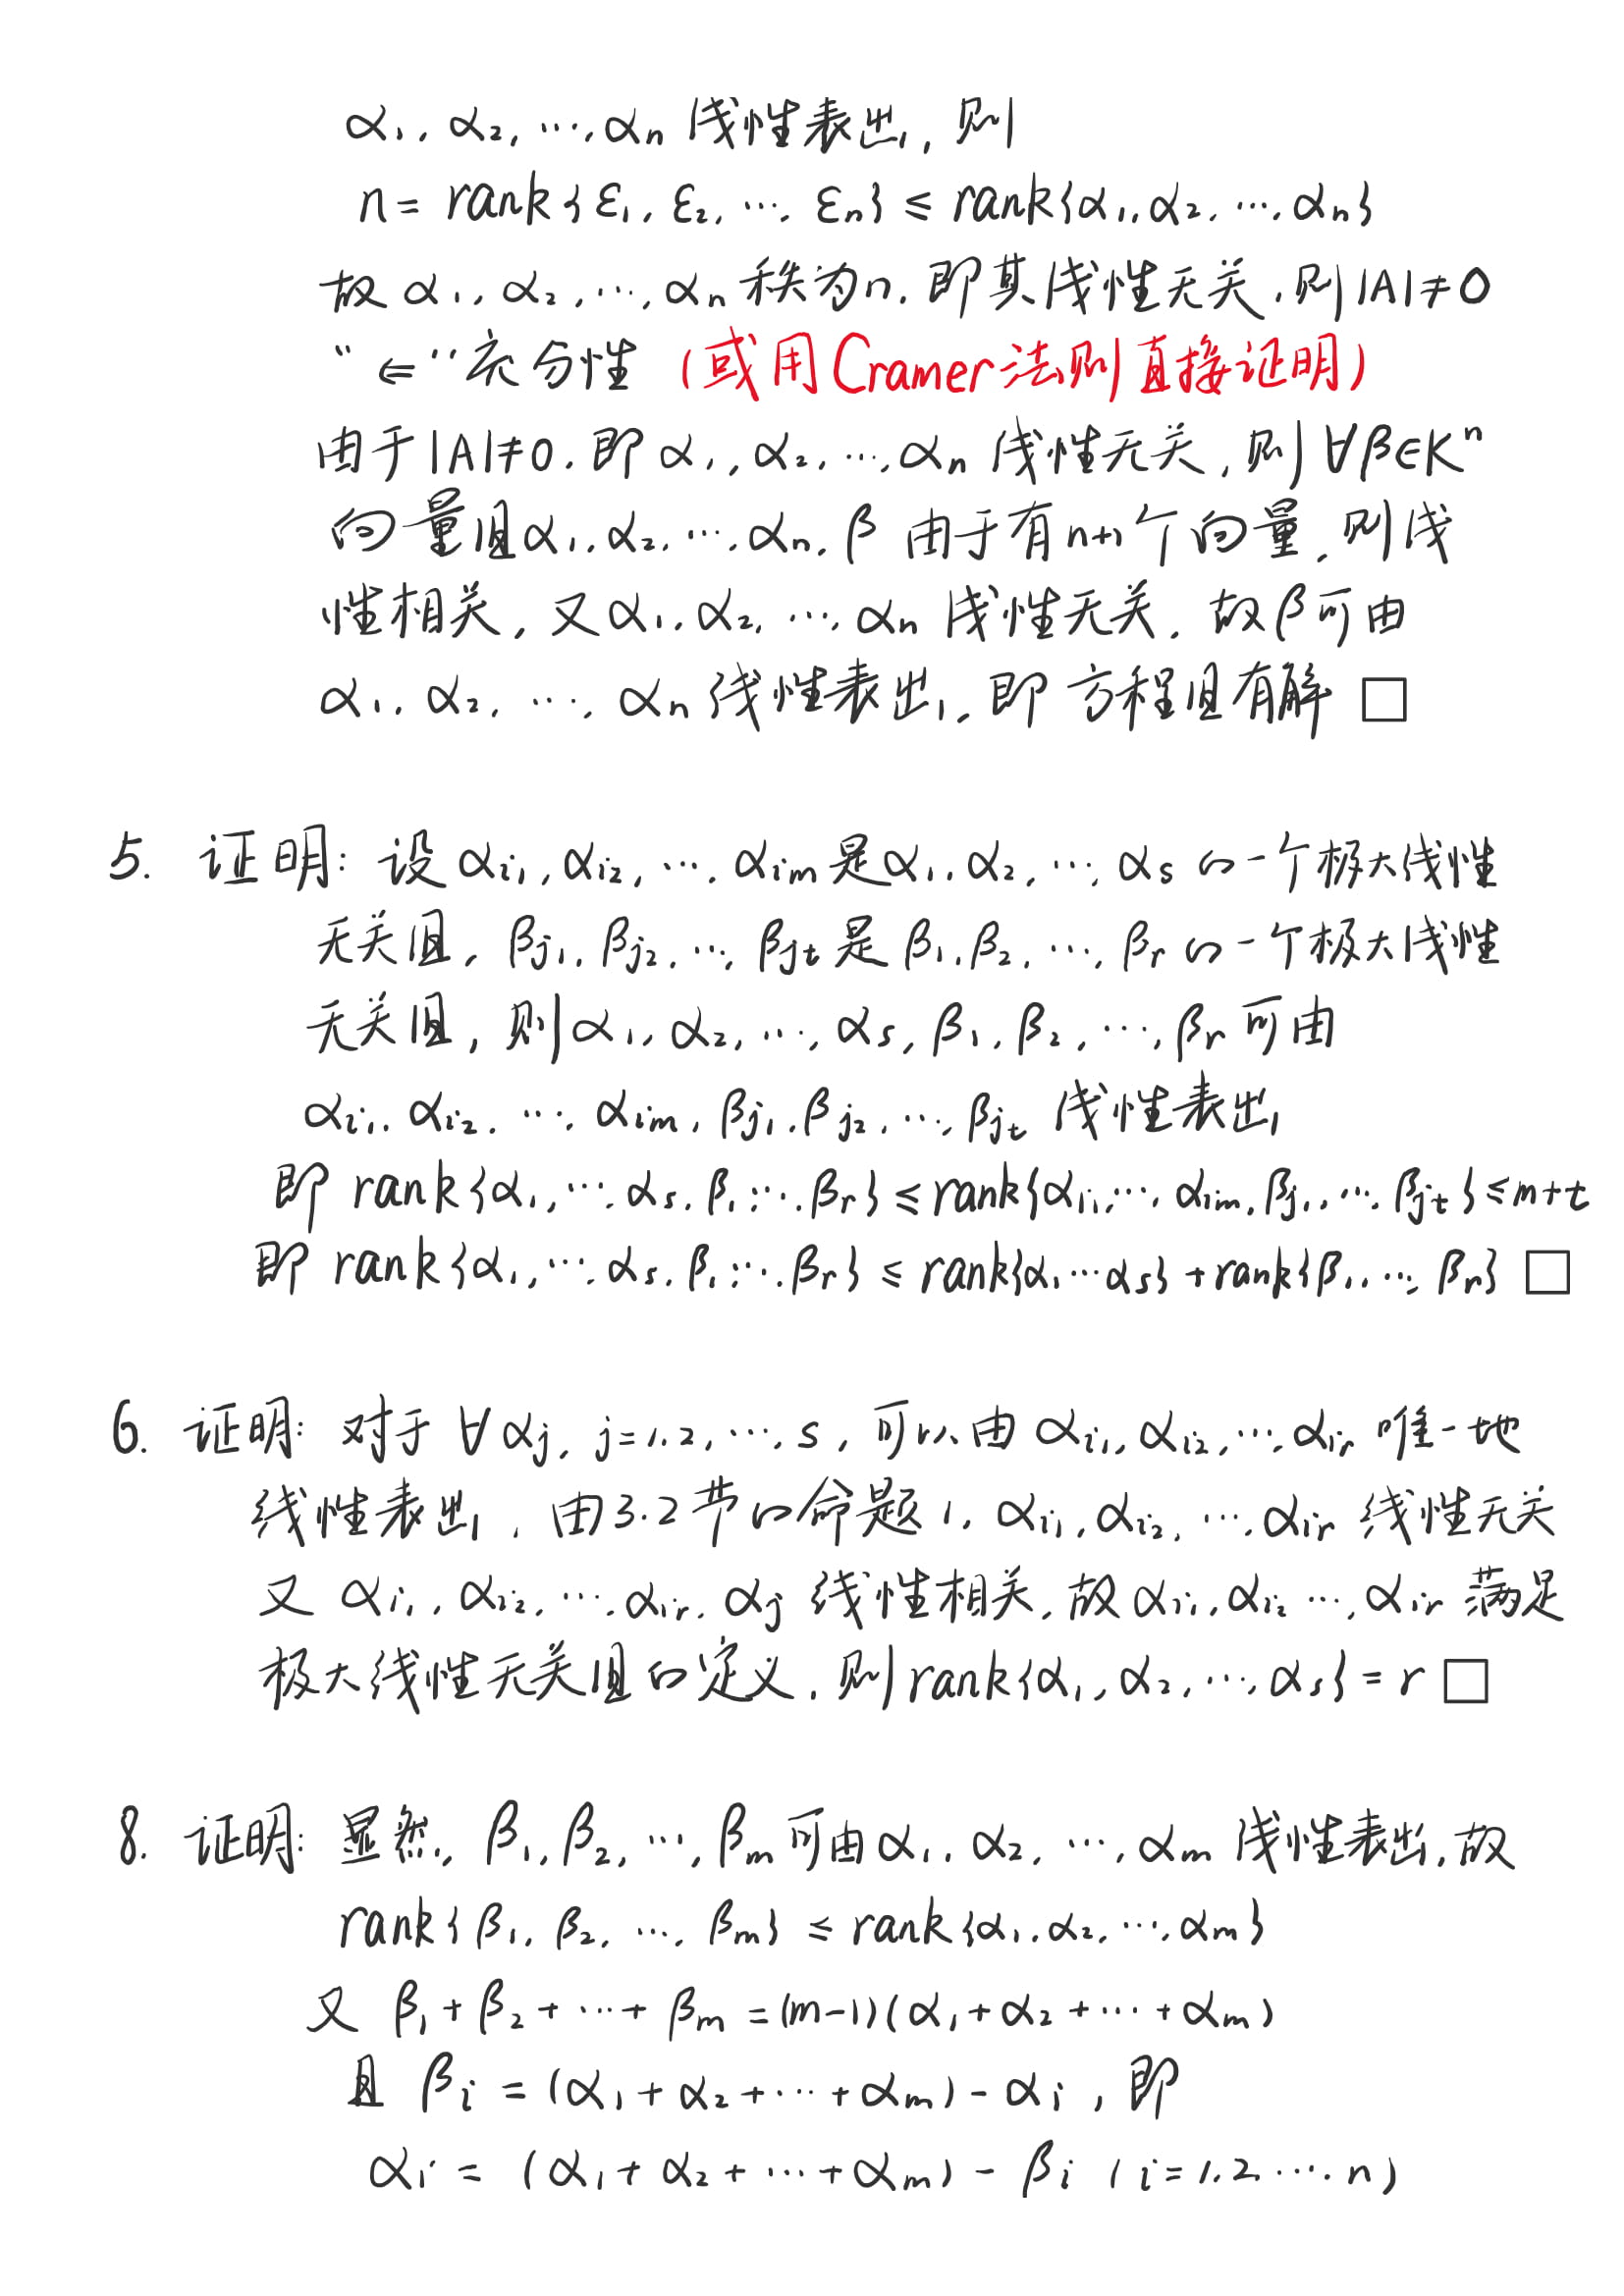 α₁, α₂, …, αₙ 线性表出, 则
n = rank{ε₁, ε₂, …, εₙ} ≤ rank{α₁, α₂, …, αₙ}
故 α₁, α₂, …, αₙ 秩为n, 即其线性无关, 则|A|≠0
“⇐”充分性 (或用Cramer法则直接证明)
由于|A|≠0, 即 α₁, α₂, …, αₙ 线性无关, 则∀β∈Kⁿ
向量组α₁, α₂, …, αₙ, β 由于有n+1个向量, 则线
性相关, 又α₁, α₂, …, αₙ 线性无关, 故β可由
α₁, α₂, …, αₙ 线性表出, 即方程组有解 □
5. 证明: 设 αi₁, αi₂, …, αim 是 α₁, α₂, …, αs 的一个极大线性
无关组, βj₁, βj₂, …, βjt 是 β₁, β₂, …, βr 的一个极大线性
无关组, 则 α₁, α₂, …, αs, β₁, β₂, …, βr 可由
αi₁, αi₂, …, αim, βj₁, βj₂, …, βjt 线性表出
即 rank{α₁, …, αs, β₁, …, βr} ≤ rank{αi₁, …, αim, βj₁, …, βjt} ≤ m+t
即 rank{α₁, …, αs, β₁, …, βr} ≤ rank{α₁…αs} + rank{β₁, …, βr} □
6. 证明: 对于 ∀αj, j=1,2,…,s, 可以由 αi₁, αi₂, …, αir 唯一地
线性表出, 由3.2节的命题1, αi₁, αi₂, …, αir 线性无关
又 αi₁, αi₂, …, αir, αj 线性相关, 故αi₁, αi₂ …, αir 满足
极大线性无关组的定义, 则rank{α₁, α₂, …, αs} = r □
8. 证明: 显然, β₁, β₂, …, βm 可由 α₁, α₂, …, αm 线性表出, 故
rank{β₁, β₂, …, βm} ≤ rank{α₁, α₂, …, αm}
又 β₁ + β₂ + … + βm = (m-1)(α₁ + α₂ + … + αm)
且 βi = (α₁ + α₂ + … + αm) - αi, 即
αi = (α₁ + α₂ + … + αm) - βi (i=1,2,…,n)